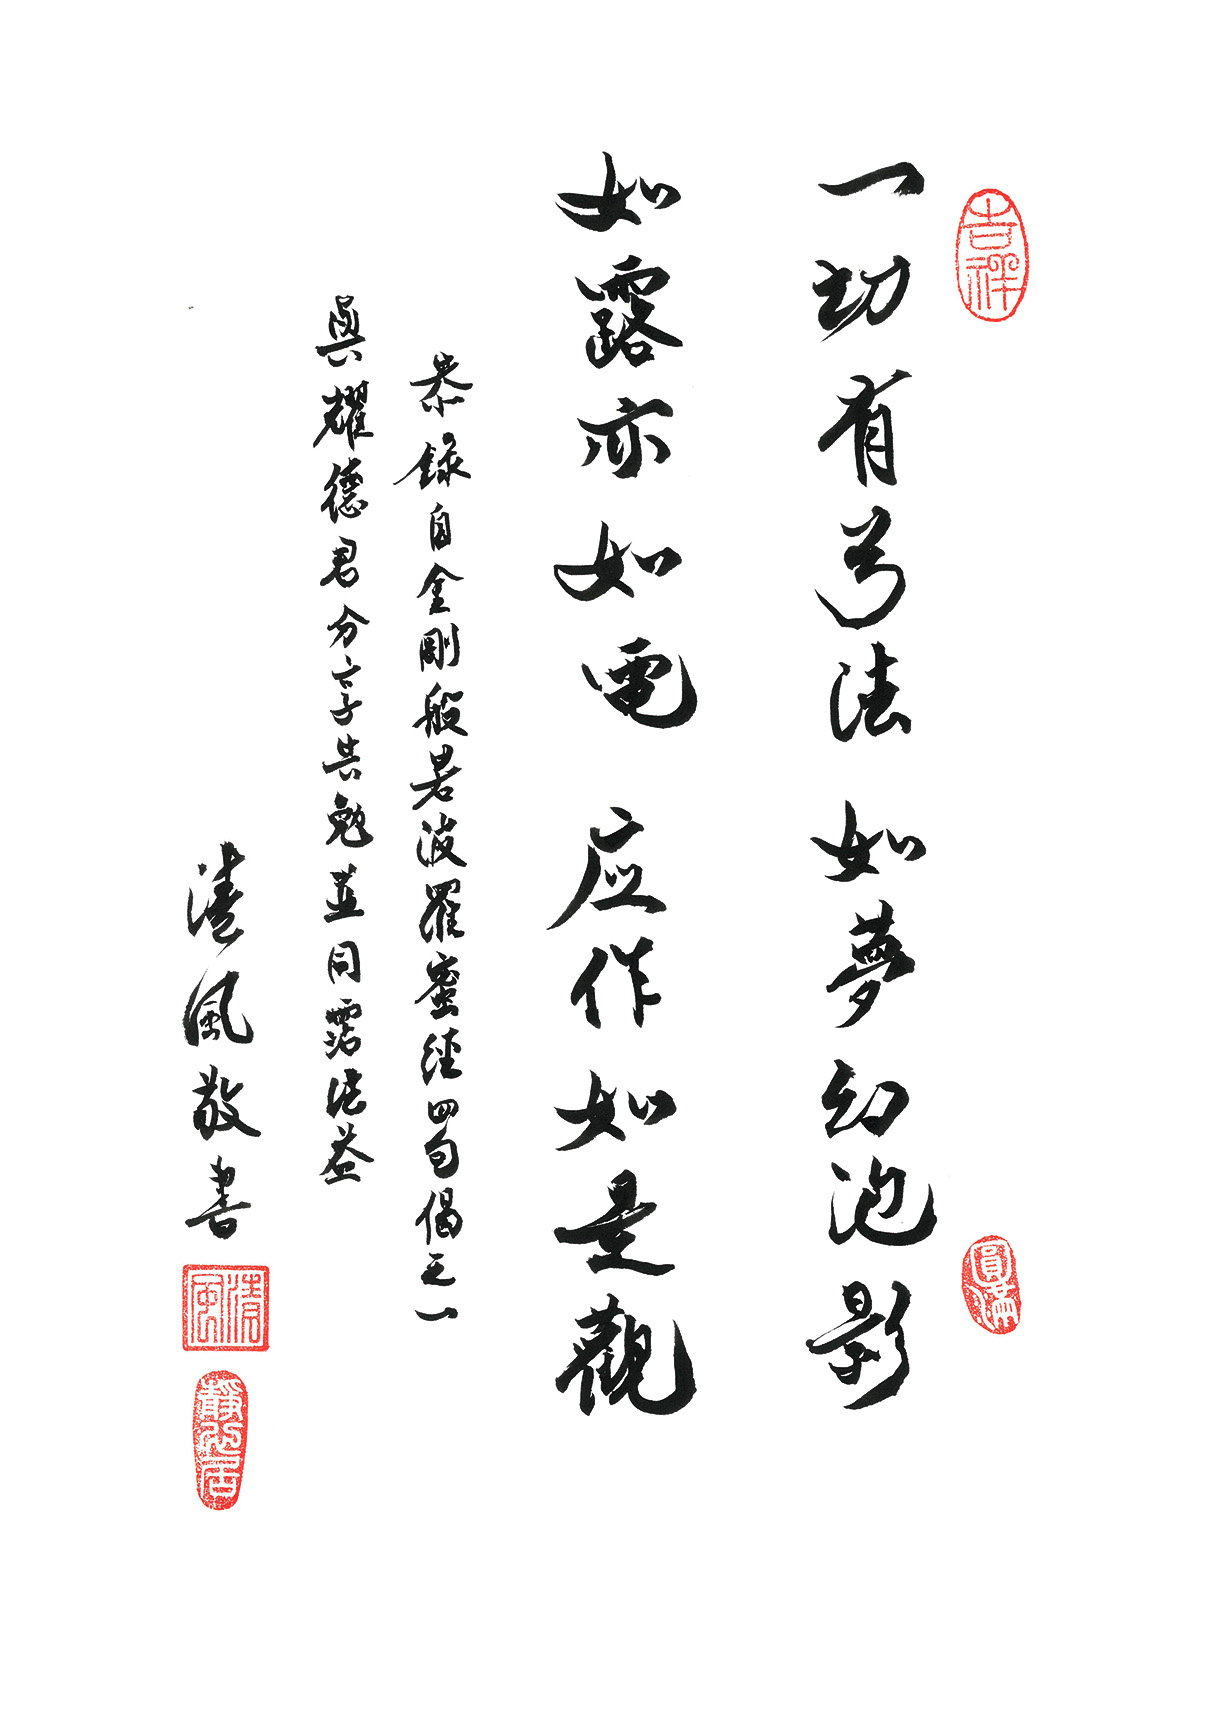 吉祥
一切有为法 如夢幻泡影
圓滿
如露亦如電 应作如是觀
恭錄自金剛般若波羅蜜經四句偈之一
與耀德君分享共勉並同霑法益
清風敬書
清風